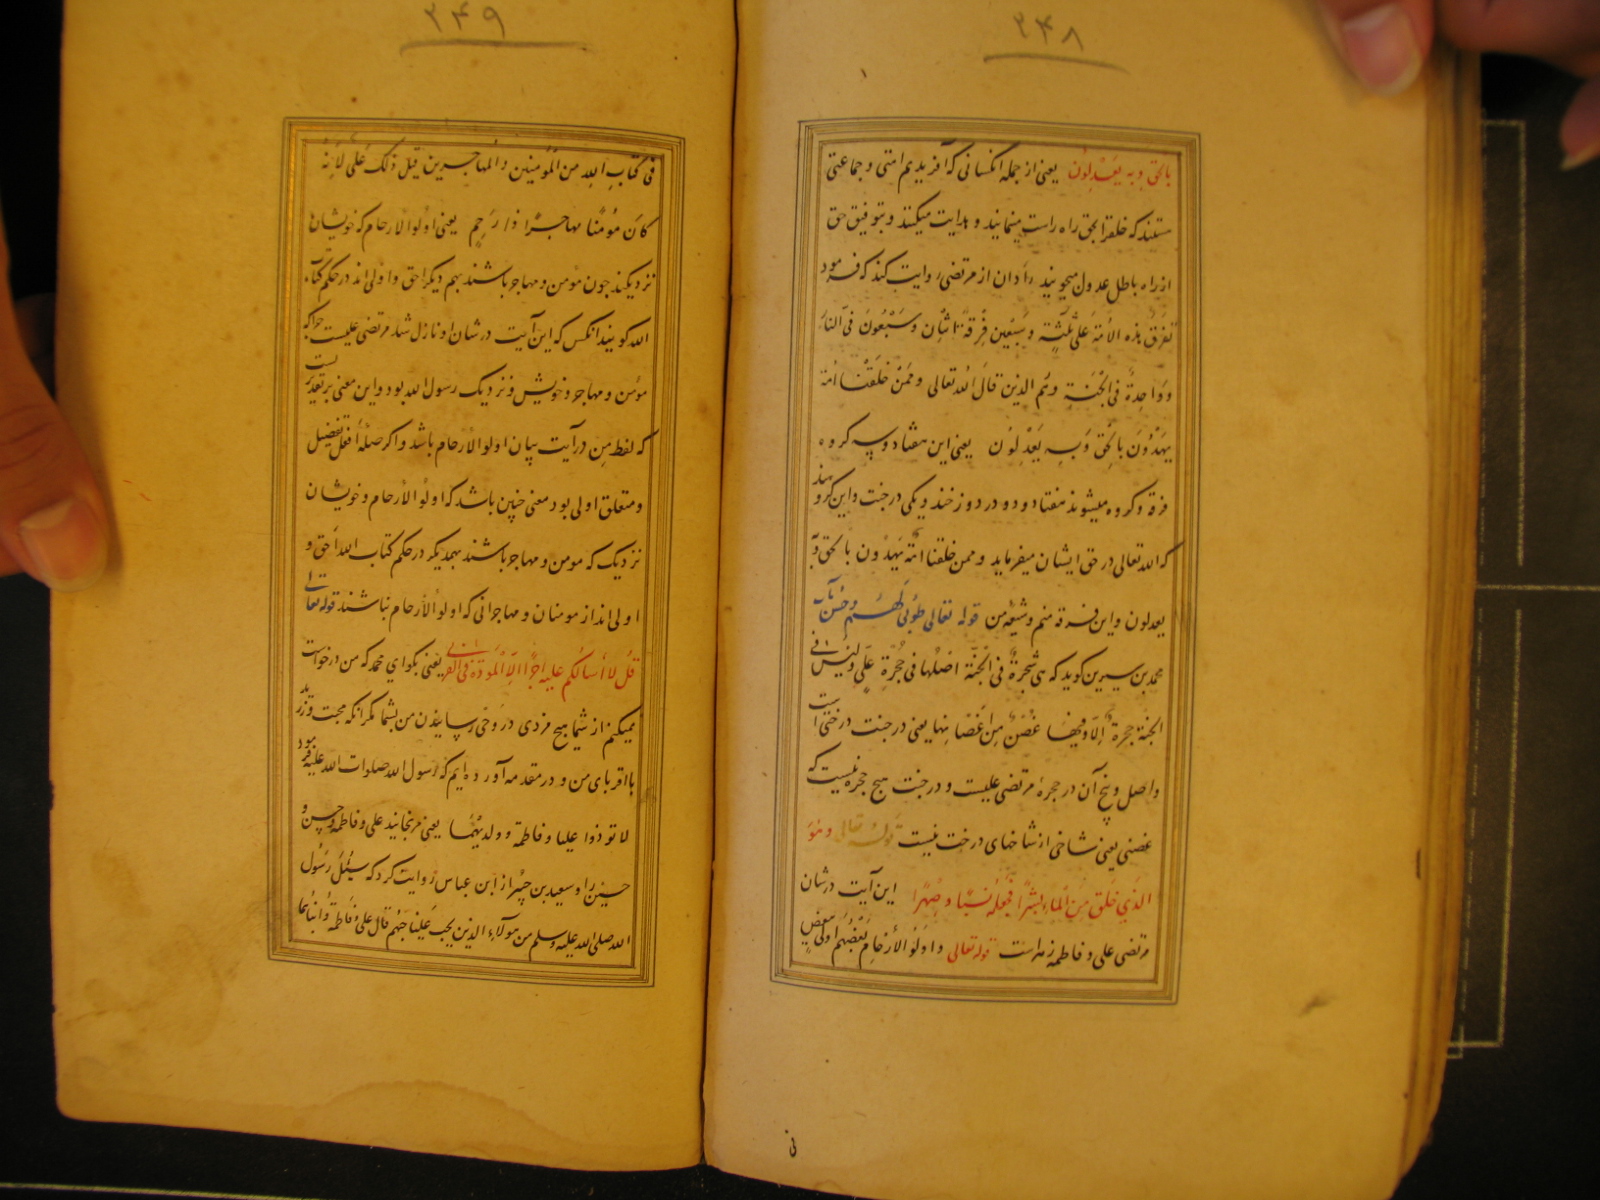 ۲۴۸
بالحق وبه یعدلون یعنی از جمله انکسانی که آفریدیم امتی و جماعتی
هستند که خلقرا بحق راه راست مینمایند و هدایت میکنند و بتوفیق حق
از راه باطل عدول میجویند زادان از مرتضی روایت کند که فرمود
تفرق هذه الامة علی ثلثة و سبعین فرقة اثنان و سبعون فی النار
و واحدة فی الجنة وهم الذین قال الله تعالی و ممن خلقنا امة
یهدون بالحق وبه یعدلون یعنی این هفتاد و سه کروه
فرقه و کروه میشوند هفتاد و دو در دوزخند و یکی در جنت و این کروهند
که الله تعالی در حق ایشان میفرماید و ممن خلقنا امة یهدون بالحق و به
یعدلون و این فرقه منم و شیعه من قوله تعالی طوبی لهم وحسن مآب
محمد بن سیرین کوید که هی شجرة فی الجنة اصلها فی حجرة علی ولیس فی
الجنة حجرة الا وفیها غصن من اغصانها یعنی در جنت درختی است
و اصل و بیخ آن در حجرهٔ مرتضی علیست و در جنت هیچ حجره نیست که
غصنی یعنی شاخی از شاخهای درخت نیست قوله تعالی وهو
الذی خلق من الماء بشرا فجعله نسبا و صهرا این آیت در شان
مرتضی علی و فاطمه زهراست قوله تعالی و اولو الارحام بعضهم اولی ببعض
فی
۲۴۹
فی کتاب الله من المؤمنین والمهاجرین قیل ذلک علی لانه
کان مؤمنا مهاجرا ذا رحم یعنی اولو الارحام که خویشان
نزدیکند چون مؤمن و مهاجر باشند بهم دیکر احق و اولی اند در حکم کتاب
الله کویند انکس که این آیت در شان او نازل شد مرتضی علیست چراکه
مؤمن و مهاجر و خویش و نزدیک رسول الله بود و این معنی بر تقدیریست
که لفظ من در آیت بیان اولو الارحام باشد و اکر صله افعل تفضیل
و متعلق اولی بود معنی چنین باشد که اولو الارحام و خویشان
نزدیک که مومن و مهاجر باشند بهمدیکر در حکم کتاب الله احق و
اولی اند از مومنان و مهاجرانی که اولو الارحام نباشند قوله تعالی
قل لا اسألکم علیه اجرا الا المودة فی القربی یعنی بکو ای محمد که من درخواست
نمیکنم از شما هیچ مزدی در وحی رسانیدن من بشما مکر انکه محبت ورزید
با اقربای من و در مقدمه آورده ایم که رسول الله صلوات الله علیه فرمود
لا توذوا علیا و فاطمة و ولدیهما یعنی مرنجانید علی و فاطمه و حسن و
حسین را و سعید بن جبیر از ابن عباس روایت کرد که سئل رسول
الله صلی الله علیه وسلم من هولاء الذین یجب علینا حبهم قال علی و فاطمة و ابناهما